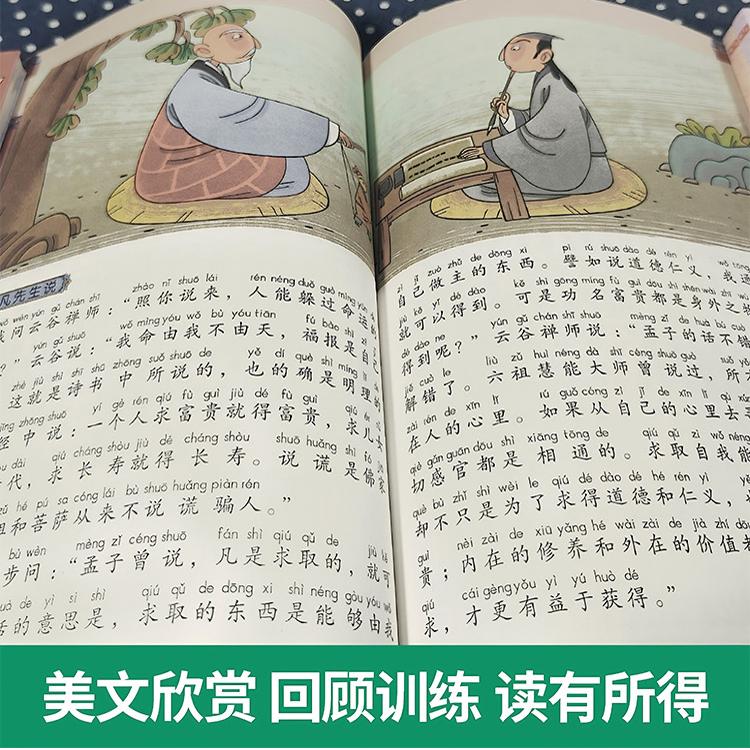 凡先生说
wèn yún gǔ chán shī zhào nǐ shuō lái rén néng duǒ guò mìng
问云谷禅师：“照你说来，人能躲过命
yún gǔ shuō wǒ mìng yóu wǒ bù yóu tiān fú bào shì
？”云谷说：“我命由我不由天，福报是自
zhè jiù shì shī shū zhōng suǒ shuō de yě dí què shì míng lǐ
这就是诗书中所说的，也的确是明理的
jīng zhōng shuō yí gè rén qiú fù guì jiù dé fù guì qiú ér
经中说：一个人求富贵就得富贵，求儿女
dài qiú cháng shòu jiù dé cháng shòu shuō huǎng shì fó
代，求长寿就得长寿。说谎是佛家
hé pú sà cóng lái bù shuō huǎng piàn rén
祖和菩萨从来不说谎骗人。”
bù wèn mèng zǐ céng shuō fán shì qiú qǔ de jiù kě
步问：“孟子曾说，凡是求取的，就可
huà de yì si shì qiú qǔ de dōng xi shì néng gòu yóu wǒ
话的意思是，求取的东西是能够由我
zì jǐ zuò zhǔ de dōng xi pì rú shuō dào dé rén yì
自己做主的东西。譬如说道德仁义，我
jiù kě yǐ dé dào kě shì gōng míng fù guì dōu shì shēn wài zhī
就可以得到。可是功名富贵都是身外之
dé dào ne yún gǔ chán shī shuō mèng zǐ de huà bú cuò
得到呢？”云谷禅师说：“孟子的话不错
jiě cuò le liù zǔ huì néng dà shī céng shuō guò suǒ
解错了。六祖慧能大师曾说过，所
zài rén de xīn lǐ rú guǒ cóng zì jǐ de xīn lǐ qù
在人的心里。如果从自己的心里去
qiè gǎn guān dōu shì xiāng tōng de qiú qǔ zì wǒ néng
切感官都是相通的。求取自我能
què bù zhǐ shì wèi le qiú dé dào dé hé rén yì
却不只是为了求得道德和仁义，
guì nèi zài de xiū yǎng hé wài zài de jià zhí dōu
贵；内在的修养和外在的价值都
qiú cái gèng yǒu yì yú huò dé
求，才更有益于获得。”
美文欣赏 回顾训练 读有所得